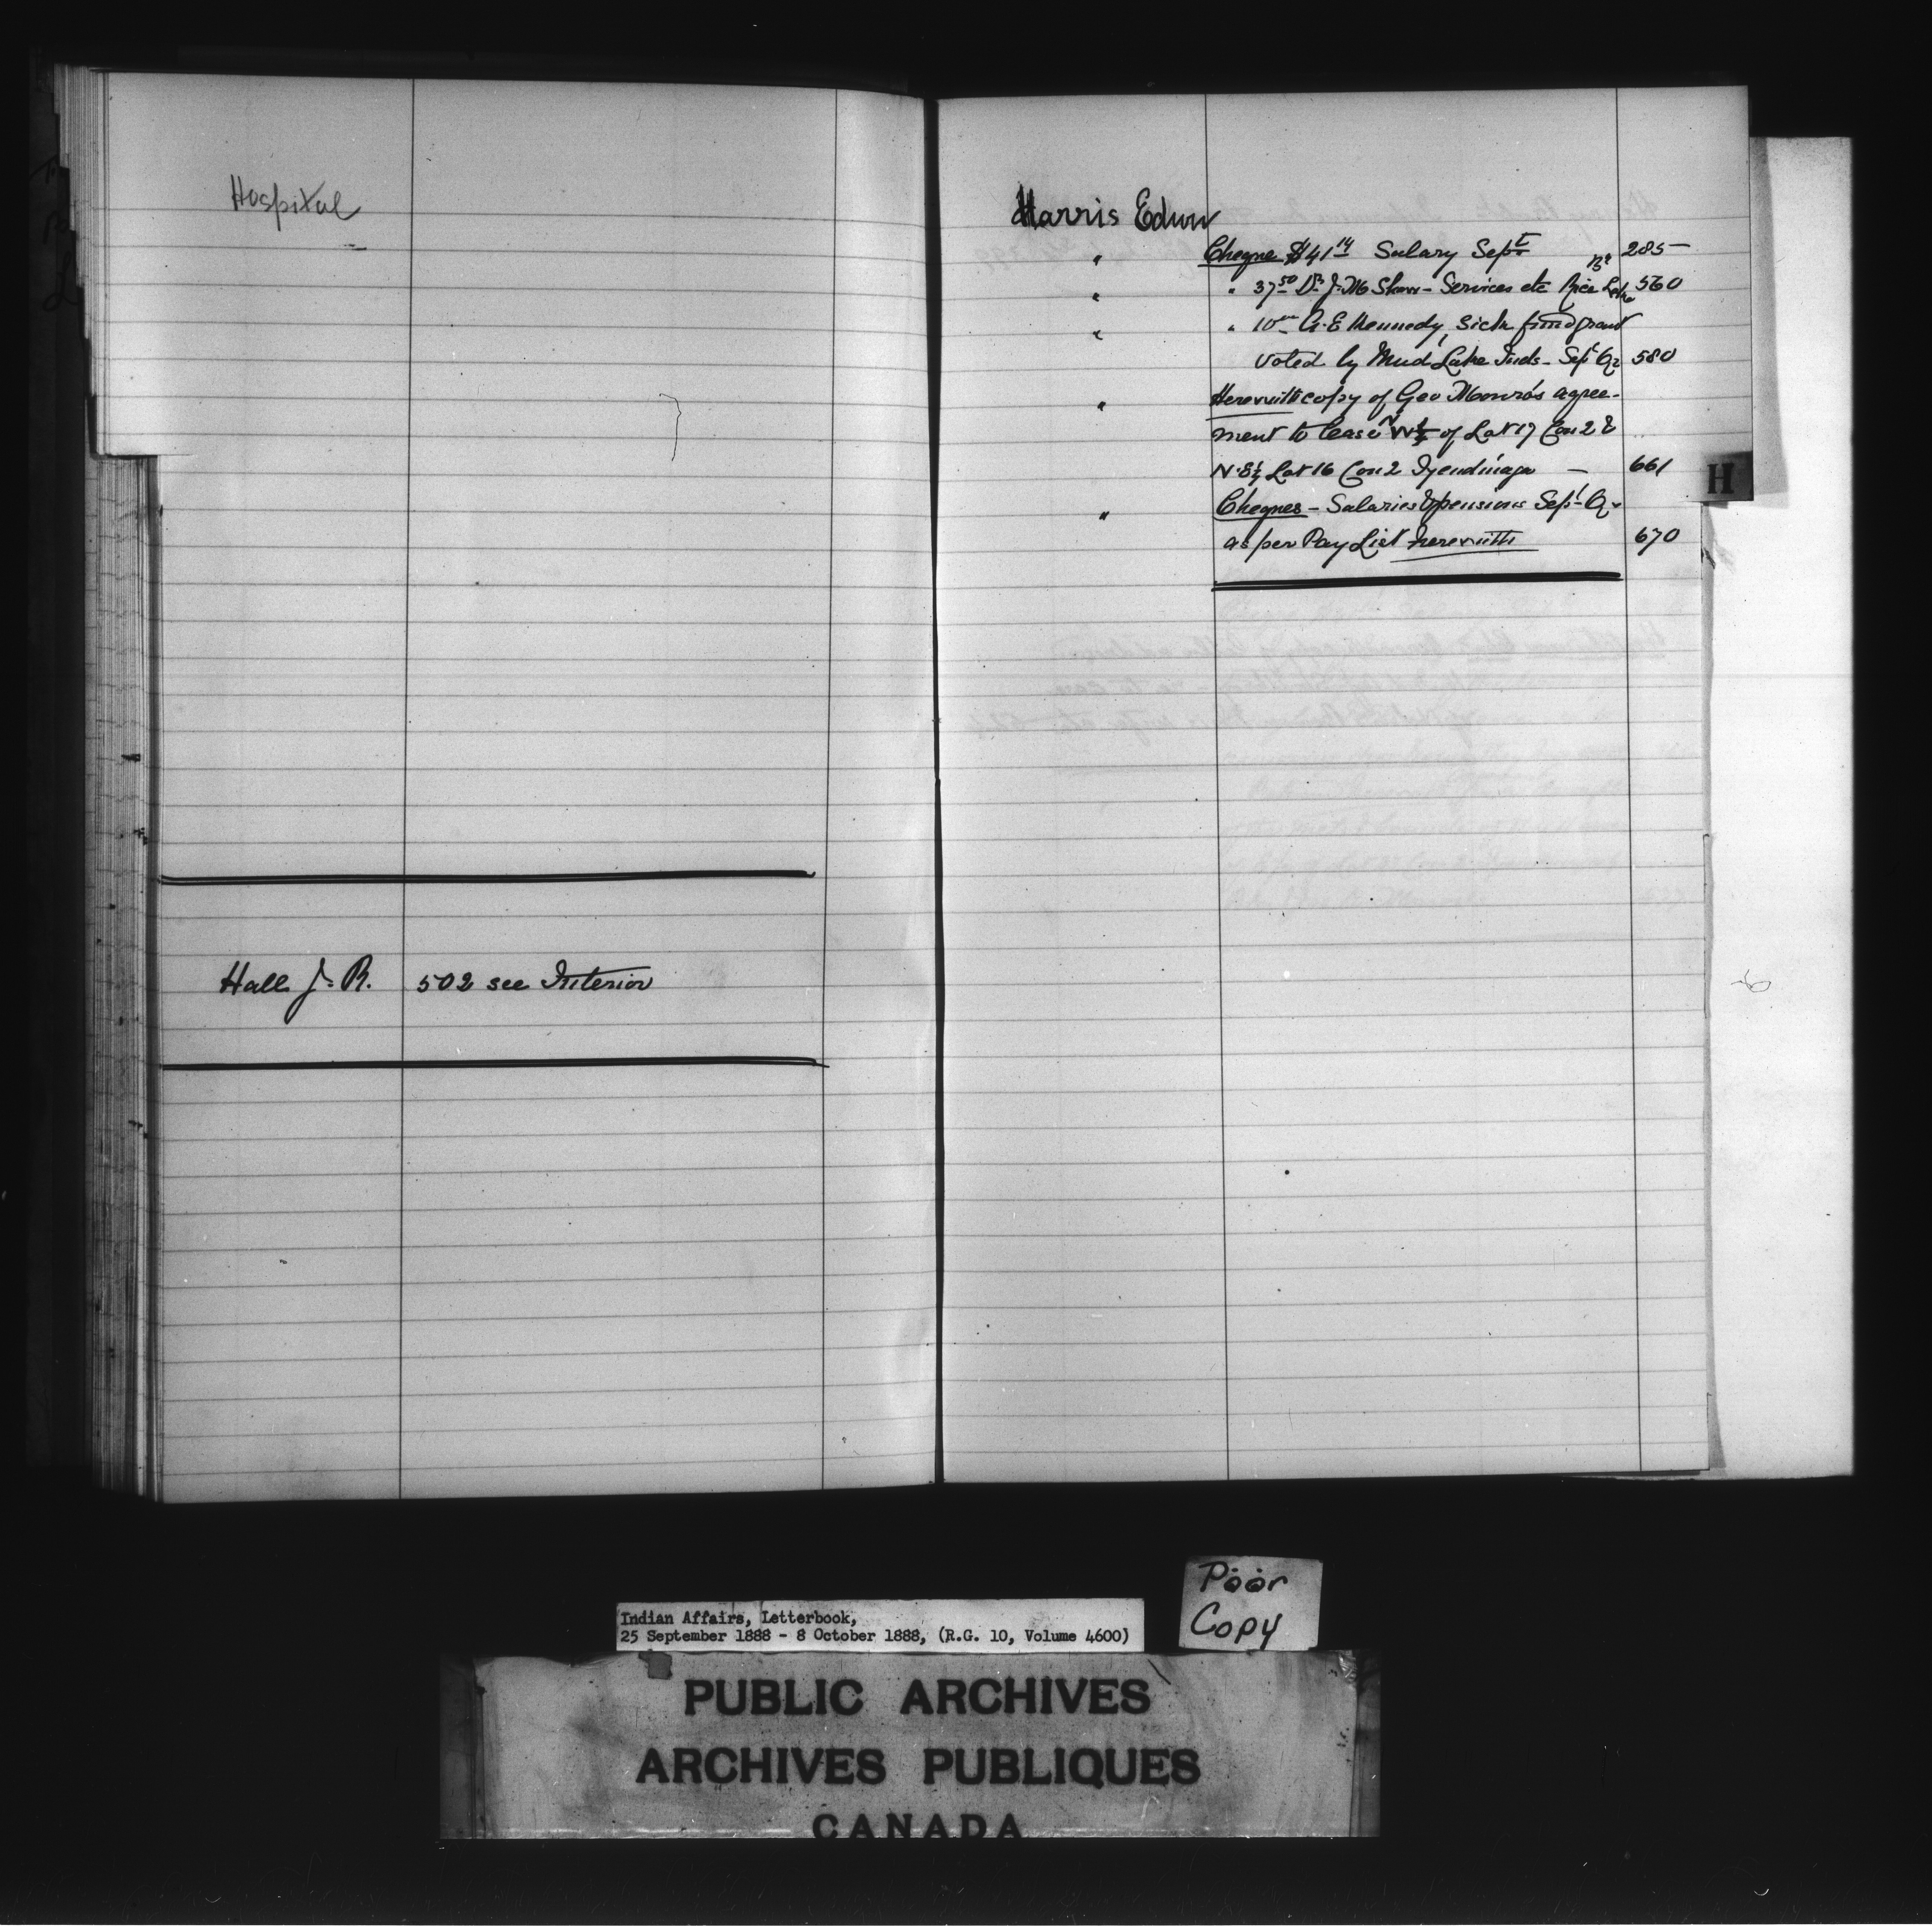 Hospital
Hall J. R. 502 see Interior
Harris Edwin
" Cheque $41 14 Salary Sept 285
" " 37 50 Dr J. M Shaw - Services etc Rice Lake Bd 560
" " 10 00 A. E Kennedy, Sick fund grant
voted by Mud Lake Inds - Sept Qr 580
" Herewith copy of Geo Monro's agree-
ment to lease N W ½ of Lot 17 Con 2 &
N. E ½ Lot 16 Con 2 Tyendinaga - 661
" Cheques - Salaries & pensions Sept Qr
as per Pay List herewith 670
H
Poor
Copy
Indian Affairs, Letterbook,
25 September 1888 - 8 October 1888, (R.G. 10, Volume 4600)
PUBLIC ARCHIVES
ARCHIVES PUBLIQUES
CANADA